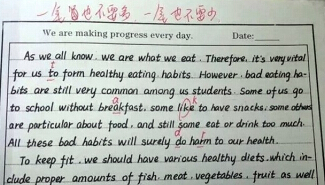 一定也不要多 一定也不要少
We are making progress every day. Date:
As we all know, we are what we eat. Therefore, it's very vital
for us to form healthy eating habits. However, bad eating ha-
bits are still very common among us students. Some of us go
to school without breakfast, some like to have snacks, some others
are particular about food, and still some eat or drink too much.
All these bad habits will surely do harm to our health.
To keep fit, we should have various healthy diets, which in-
clude proper amounts of fish, meat, vegetables, fruit as well